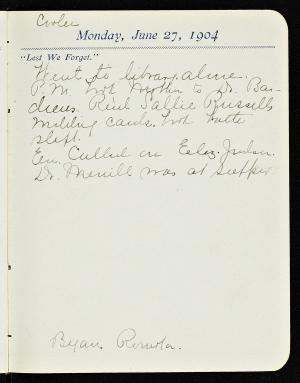 Cooler
Monday, June 27, 1904
"Lest We Forget."
Went to library alone.
P.M. with Mother to Dr. Ba-
Rec'd Sallie Russell's
wedding cards.
Eve. Called on Eliz.
Dr. Merrill was at supper
Began Romola.